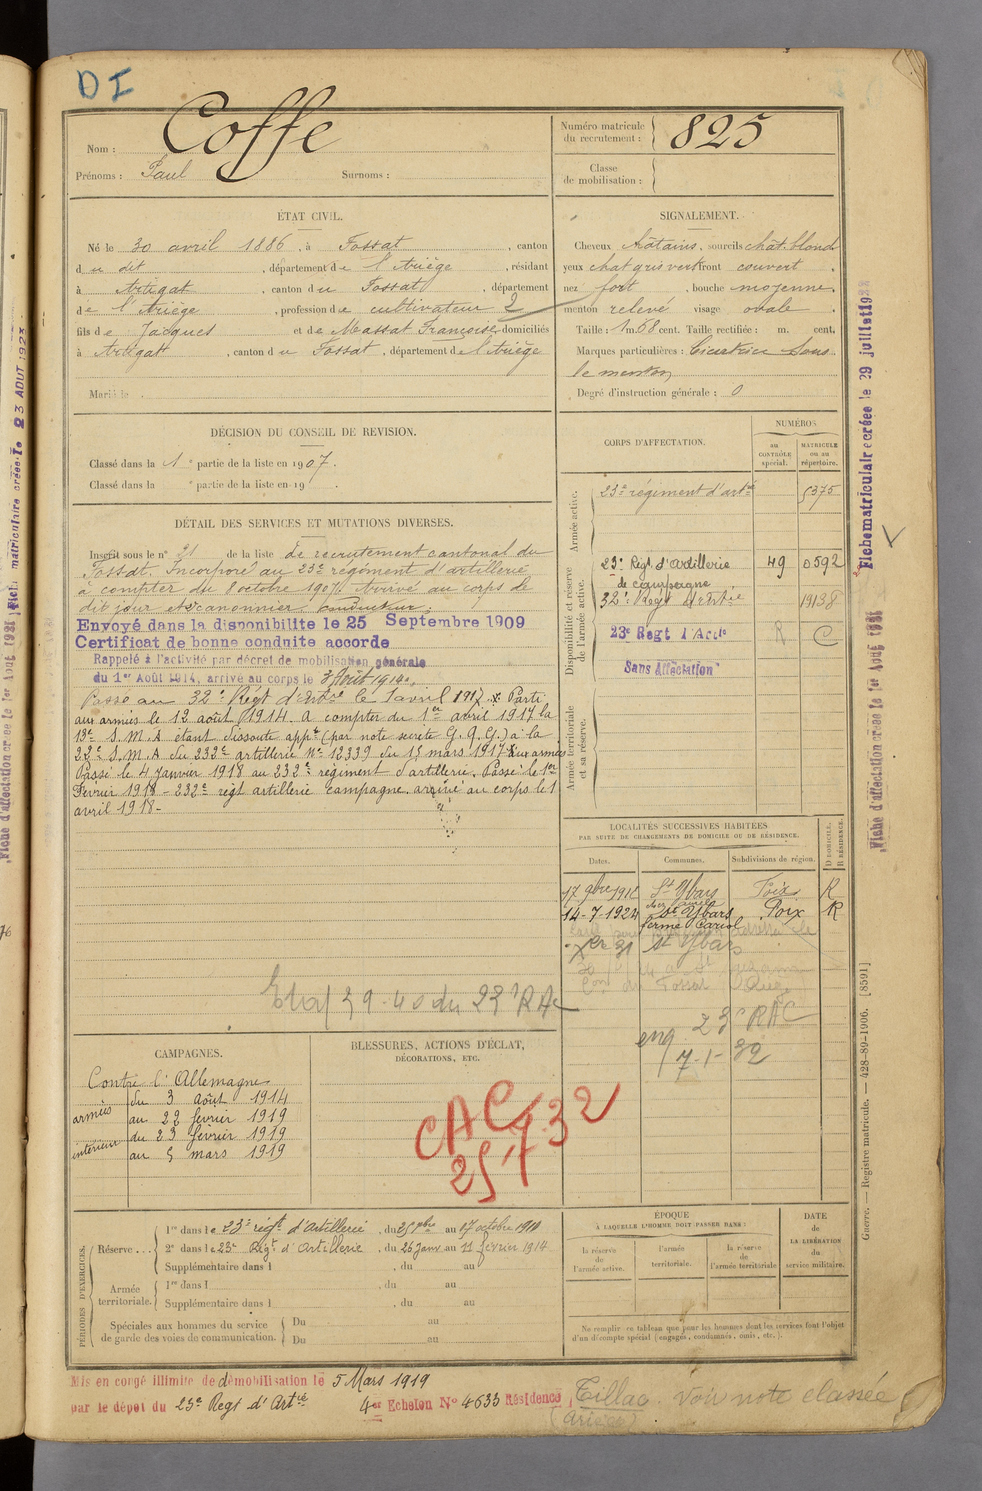 DI
Nom : Coffe
Prénoms : Paul Surnoms :
Numéro matricule du recrutement : 825
Classe de mobilisation :
ÉTAT CIVIL.
Né le 30 avril 1886, à Fossat, canton
du dit, département de l'Ariège, résidant
à Artigat, canton du Fossat, département
de l'Ariège, profession de cultivateur 2
fils de Jacques et de Massat Françoise domiciliés
à Artigat, canton du Fossat, département de l'Ariège
Marié le
SIGNALEMENT.
Cheveux châtains, sourcils chât. blond
yeux chat gris vert front couvert
nez fort, bouche moyenne
menton relevé visage ovale.
Taille : 1m 68 cent. Taille rectifiée : m. cent.
Marques particulières : Cicatrice sous
le menton
Degré d'instruction générale : 0
DÉCISION DU CONSEIL DE REVISION.
Classé dans la 1e partie de la liste en 1907.
Classé dans la e partie de la liste en 19
CORPS D'AFFECTATION.
NUMÉROS
au CONTRÔLE spécial.
MATRICULE ou au répertoire.
Armée active.
23e régiment d'artie 5375
Disponibilité et réserve de l'armée active.
23e Régt d'Artillerie 49 0592
de campagne
32e Regt d'Artie 19138
23e Regt d'Artie R C
Sans Affectation
Armée territoriale et sa réserve.
DÉTAIL DES SERVICES ET MUTATIONS DIVERSES.
Inscrit sous le n° 21 de la liste de recrutement cantonal du
Fossat. Incorporé au 23e régiment d'artillerie
à compter du 8 octobre 1907. Arrivé au corps le
dit jour et 2e canonnier conducteur.
Envoyé dans la disponibilite le 25 Septembre 1909
Certificat de bonne conduite accorde
Rappelé à l'activité par décret de mobilisation générale
du 1er Août 1914, arrivé au corps le 3 Août 1914.
Passé au 32e Régt d'Artie le 1 avril 1917. Parti
aux armées le 12 août 1914. A compter du 1er avril 1917 la
13e S.M.A étant dissoute appt (par note secrete G.Q.G.) à la
22e S.M.A du 232e artillerie N° 12339 du 15 mars 1917 aux armées
Passé le 4 Janvier 1918 au 232e régiment d'artillerie. Passé le 1er
Février 1918 - 232e régt artillerie campagne. arrivé au corps le 1
avril 1918 -
59-40 du 23e RAC
LOCALITÉS SUCCESSIVES HABITÉES
PAR SUITE DE CHANGEMENTS DE DOMICILE OU DE RÉSIDENCE.
Dates. Communes. Subdivisions de région. D DOMICILE. R RÉSIDENCE.
St Ybars Foix R
14-7-1924 St Ybars Foix R
ferme Cariol
31 St Ybars
23e RAC
7-1-32
CAMPAGNES.
Contre l'Allemagne
armées du 3 août 1914
au 22 février 1919
intérieur du 23 février 1919
au 5 mars 1919
BLESSURES, ACTIONS D'ÉCLAT,
DÉCORATIONS, ETC.
CAC
25.7.32
PÉRIODES D'EXERCICES.
Réserve ... 1re dans le 23e régt d'Artillerie, du 25 7bre au 17 octobre 1911
2e dans le 23e Régt d'Artillerie, du 26 janv. au 11 février 1914
Supplémentaire dans l , du au
Armée territoriale. 1re dans l , du au
Supplémentaire dans l , du au
Spéciales aux hommes du service
de garde des voies de communication.
Du au
Du au
ÉPOQUE
À LAQUELLE L'HOMME DOIT PASSER DANS :
la réserve de l'armée active.
l'armée territoriale.
la réserve de l'armée territoriale
DATE DE LA LIBÉRATION du service militaire.
Ne remplir ce tableau que pour les hommes dont les services font l'objet
d'un décompte spécial (engagés, condamnés, omis, etc.).
Mis en congé illimité de démobilisation le 5 Mars 1919
par le dépôt du 23e Regt d'Artie 4e Echelon N° 4633 Résidence Tillac Voir note classée
(Ariège)
Fiche matriculaire créée le 29 juillet 193
Fiche d'affectation créée le 1er Août 1931
Guerre. — Registre matricule. — 428-89-1906. [8591]
Fiche matriculaire créée le 23 AOUT 1923
Fiche d'affectation créée le 1er Août 1931